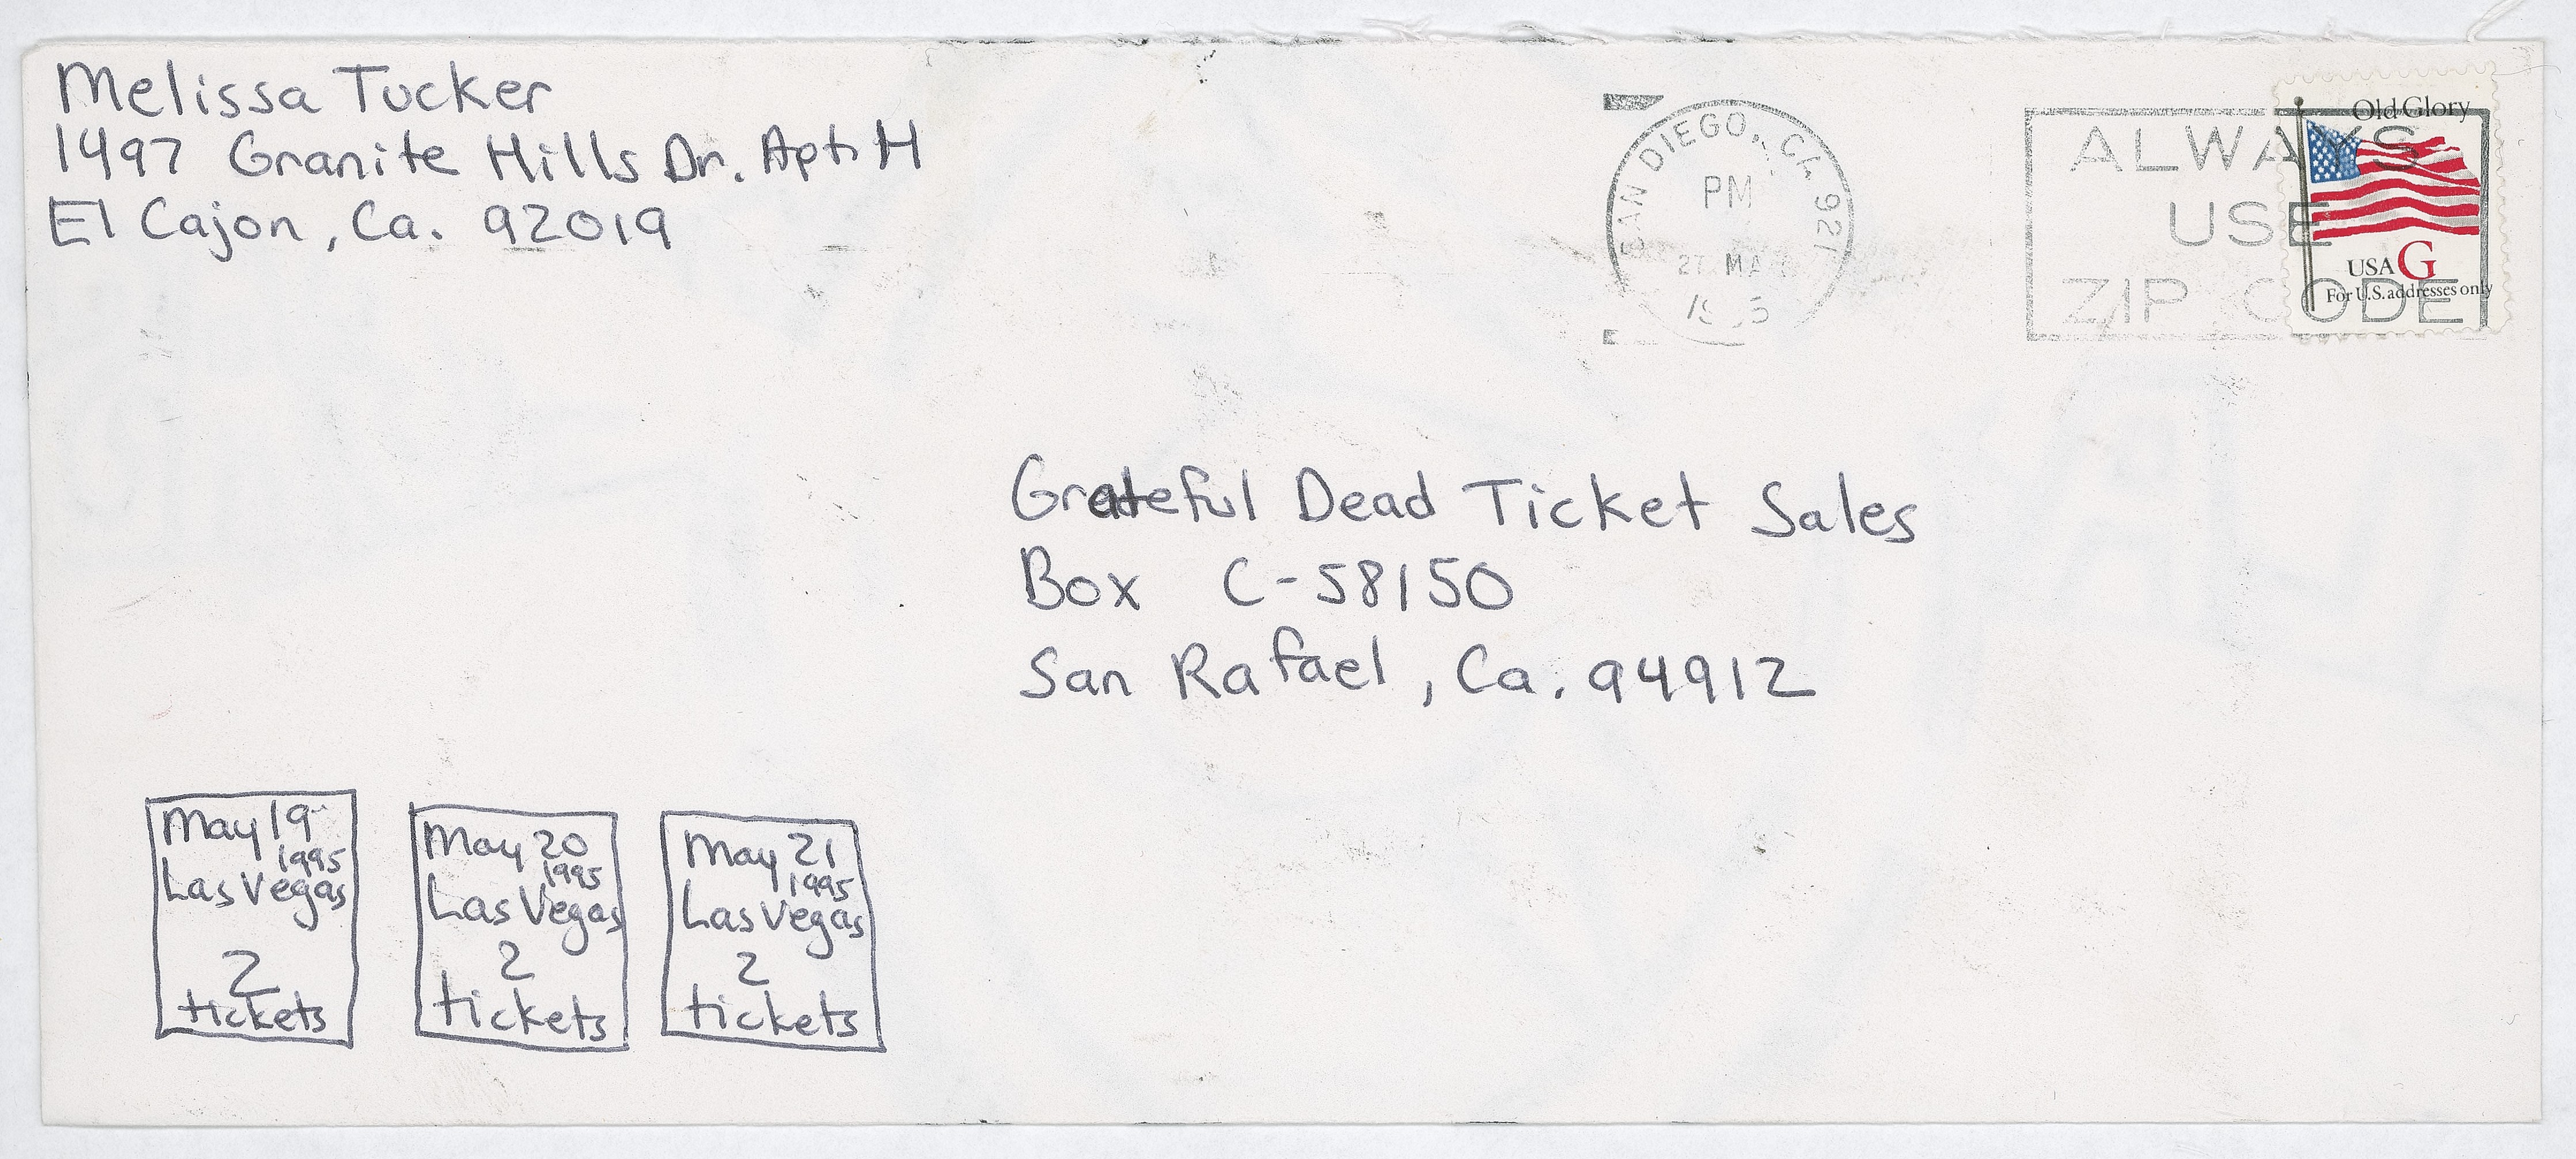 Melissa Tucker
1497 Granite Hills Dr. Apt. H
El Cajon, Ca. 92019
SAN DIEGO, CA. 921
PM
27
ALWAYS
USE
ZIP CODE
Old Glory
USA G
For U.S. addresses only
Grateful Dead Ticket Sales
Box C-58150
San Rafael, Ca. 94912
May 19
1995
Las Vegas
2
tickets
May 20
1995
Las Vegas
2
tickets
May 21
1995
Las Vegas
2
tickets